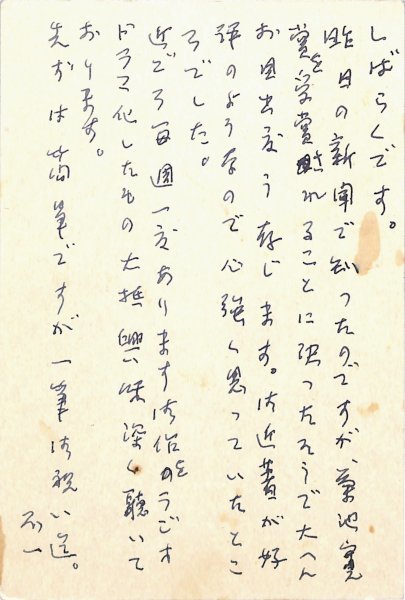 しばらくです。
昨日の新聞で知ったのですが、菊池寛
賞を受賞されることに決ったそうで大へん
お目出度う存じます。御近著が好
評のようなので心強く思っていたとこ
ろでした。
近ごろ毎週一度あります御作をラジオ
ドラマ化したもの大抵興味深く聴いて
おります。
先ずは葉書ですが一筆御祝い迄。
不一